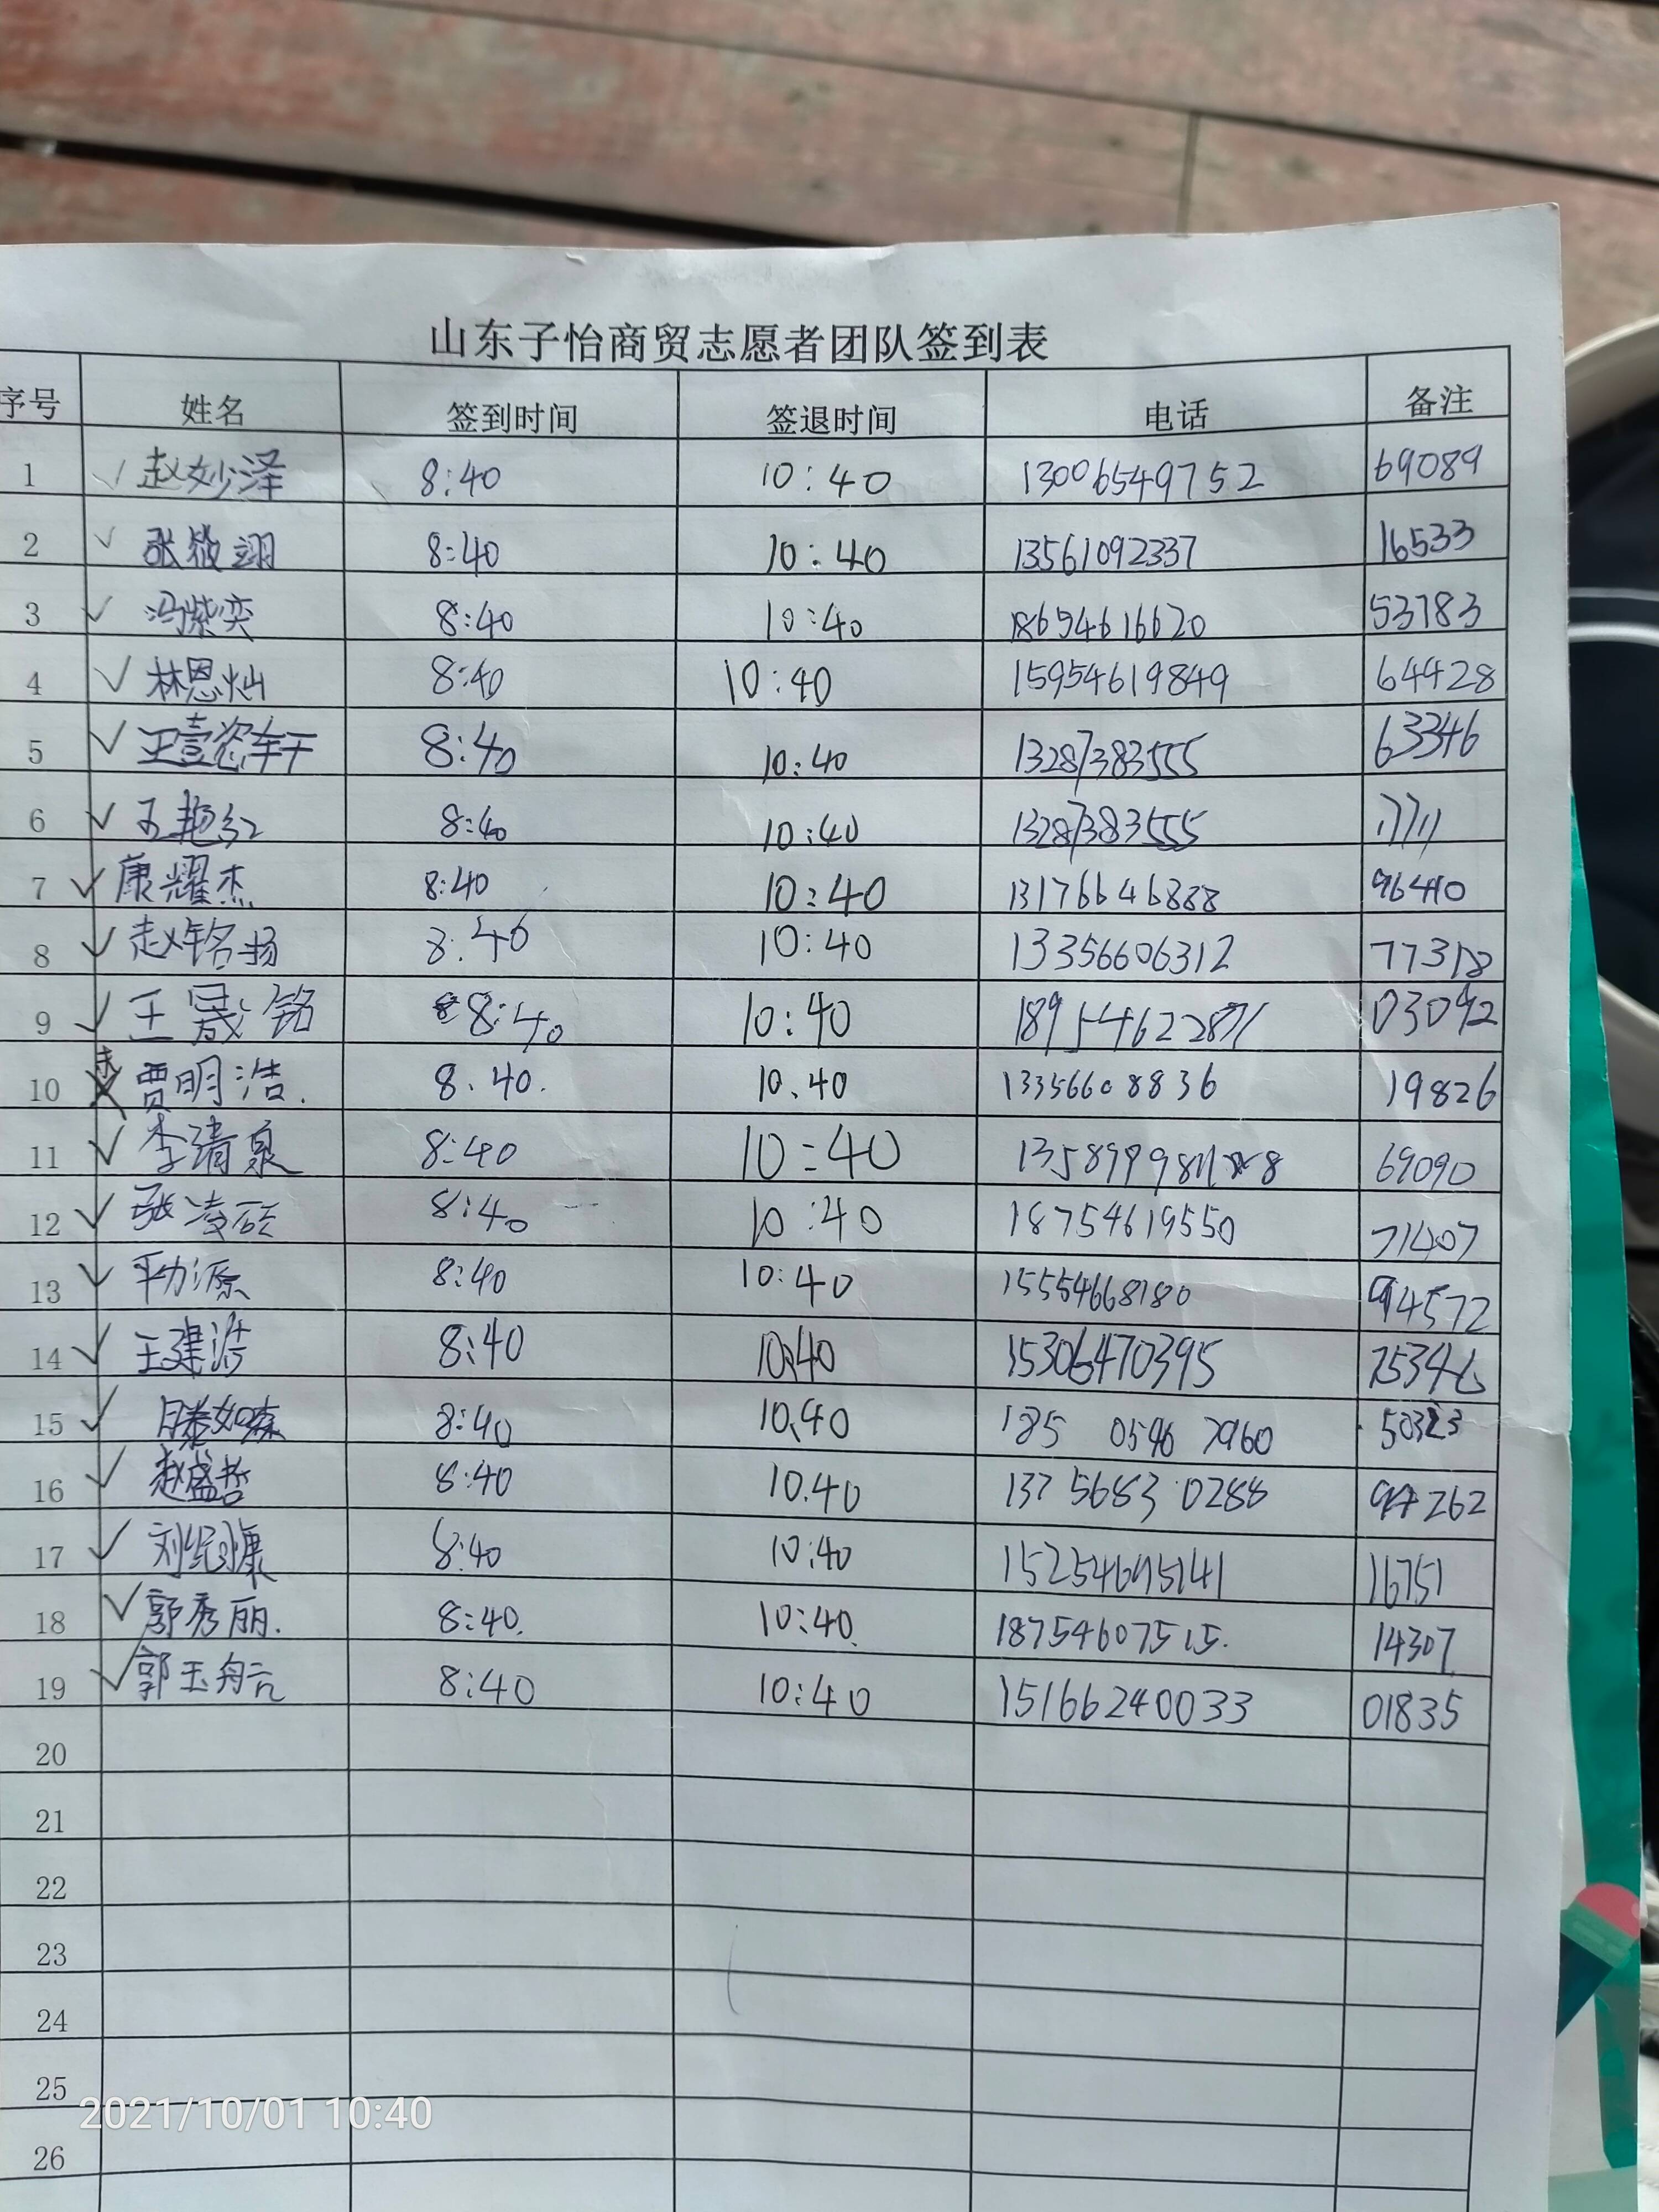 山东子怡商贸志愿者团队签到表
序号 姓名 签到时间 签退时间 电话 备注
1 赵妙泽 8:40 10:40 13006549752 69089
2 张筱翊 8:40 10:40 13561092337 16533
3 冯紫奕 8:40 10:40 18654616620 53783
4 林恩灿 8:40 10:40 15954619849 64428
5 王壹恣轩 8:40 10:40 13287383555 63346
6 王艳红 8:40 10:40 13287383555
7 康耀杰 8:40 10:40 13176646888 96410
8 赵铭扬 8:40 10:40 13356606312
9 王晟铭 8:40 10:40 03092
10 未 贾明浩. 8.40. 10.40 13356608836 19826
11 李清泉 8:40 10:40 69090
12 张凌硕 8:40 10:40 18754619550 71407
13 源 8:40 10:40 15554668180 94572
14 王建浩 8:40 10:40 15306470395 75346
15 滕如森 8:40 10:40 185 0546 7960
16 赵盛哲 8:40 10.40 137 5683 0288
17 刘 康 8:40 10:40 15254695141 16751
18 郭秀丽. 8:40. 10:40. 18754607515. 14307
19 郭玉 8:40 10:40 15166240033 01835
20
21
22
23
24
25
26
2021/10/01 10:40